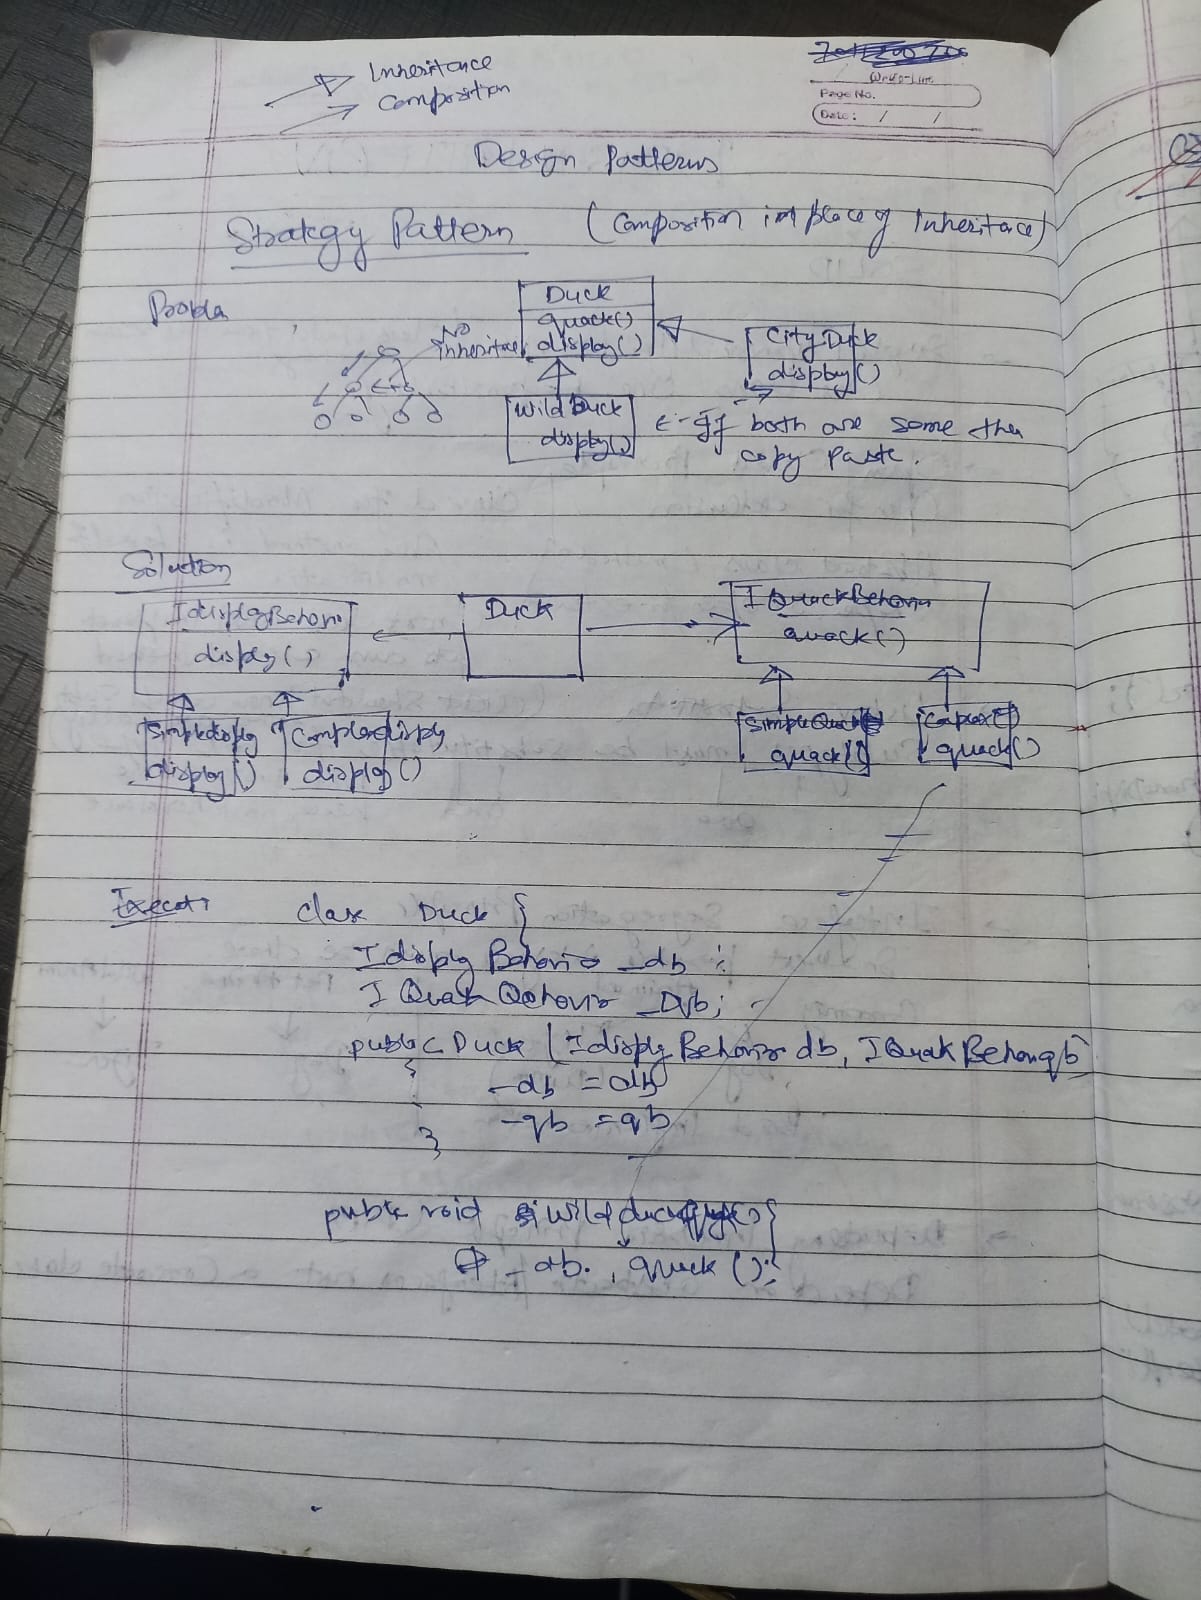 Inheritance
Composition
Page No.
Date: / /
Design Patterns
Strategy Pattern (Composition in place of Inheritace)
Duck
quack()
display()
NO
inheritace
City Duck
display()
Wild Duck
display()
If both are same then
copy paste.
Solution
I display Behavior
display()
Duck
I QuackBehavior
quack()
Simpledisply
display()
Complexdisply
display()
SimpleQuack
quack()
quack()
class Duck {
I disply Behavior _db ;
public Duck (I disply Behavior db, I Quak Behav qb)
{ _db = db
_qb = qb
}
public void
_db. quack();